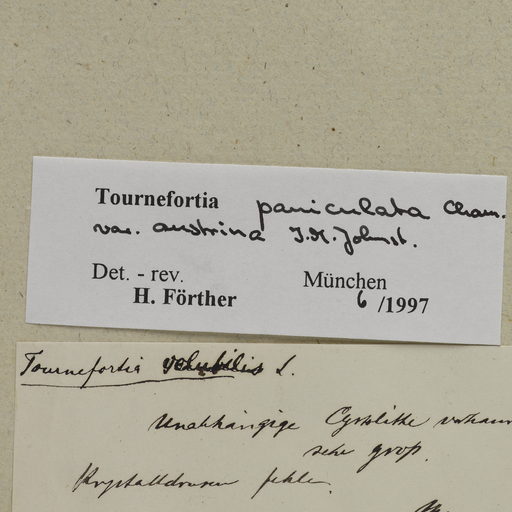 Tournefortia paniculata Cham.
var. austrina I.M. Johnst.
Det. - rev. München
H. Förther 6/1997
Tournefortia volubilis L.
Unabhängige Cystolithe
sehr groß.
Krystalldrusen fehlen.